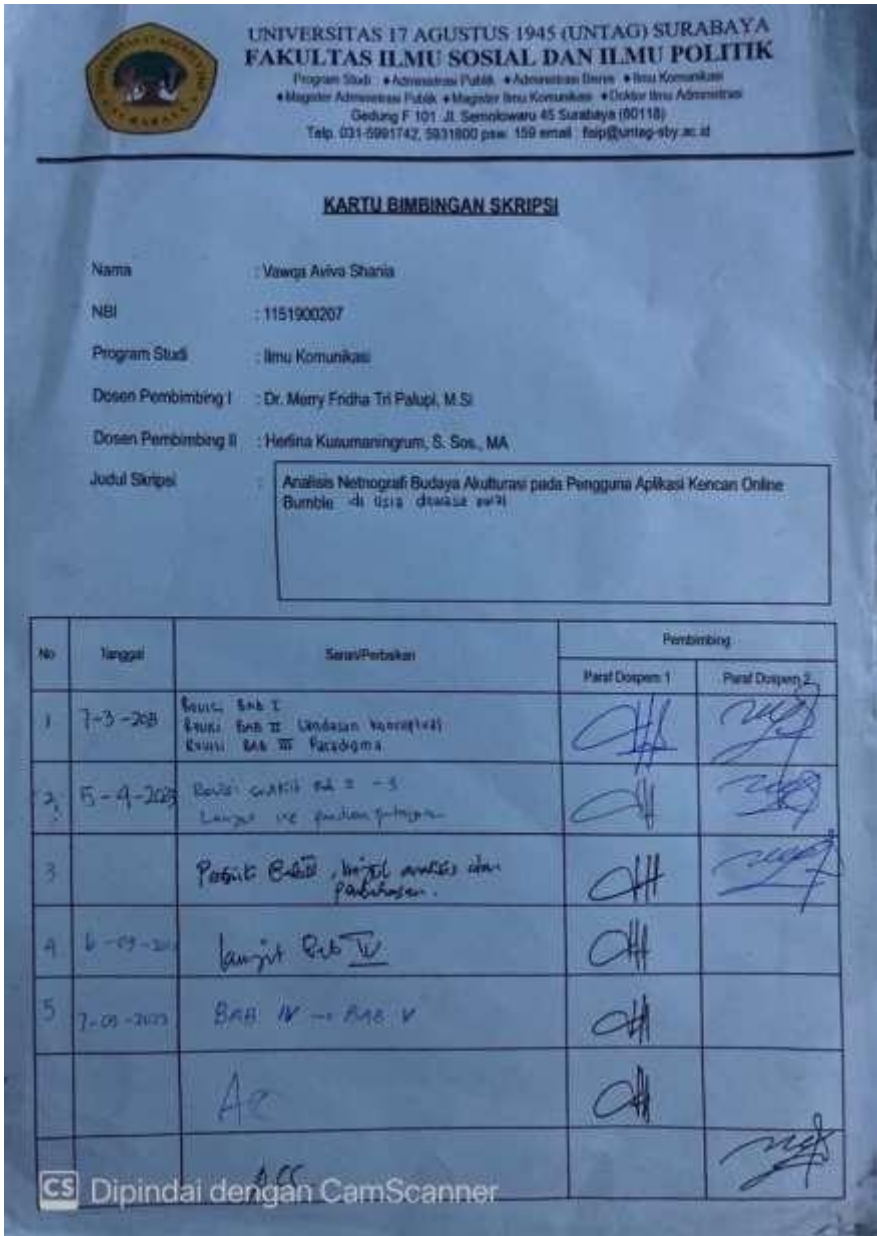 UNIVERSITAS 17 AGUSTUS 1945 (UNTAG) SURABAYA
FAKULTAS ILMU SOSIAL DAN ILMU POLITIK
Program Studi : ♦Administrasi Publik ♦Administrasi Bisnis ♦Ilmu Komunikasi
♦Magister Administrasi Publik ♦Magister Ilmu Komunikasi ♦Doktor Ilmu Administrasi
Gedung F 101 Jl. Semolowaru 45 Surabaya (60118)
Telp. 031-5991742, 5931800 psw. 159 email : fisip@untag-sby.ac.id
KARTU BIMBINGAN SKRIPSI
Nama : Vawqa Aviva Shania
NBI : 1151900207
Program Studi : Ilmu Komunikasi
Dosen Pembimbing I : Dr. Merry Fridha Tri Palupi, M.Si
Dosen Pembimbing II : Herlina Kusumaningrum, S. Sos., MA
Judul Skripsi : Analisis Netnografi Budaya Akulturasi pada Pengguna Aplikasi Kencan Online
Bumble di usia dewasa awal
No Tanggal Saran/Perbaikan Pembimbing
Paraf Dospem 1 Paraf Dospem 2
1 7-3-2023 Revisi BAB I
Revisi BAB II Landasan konseptual
Revisi BAB III Paradigma
2. 5-4-2023 Revisi
Lanjut ke
3 analisis dan
pembahasan.
4 lanjut Bab IV
5 BAB IV → BAB V
ACC
CS Dipindai dengan CamScanner